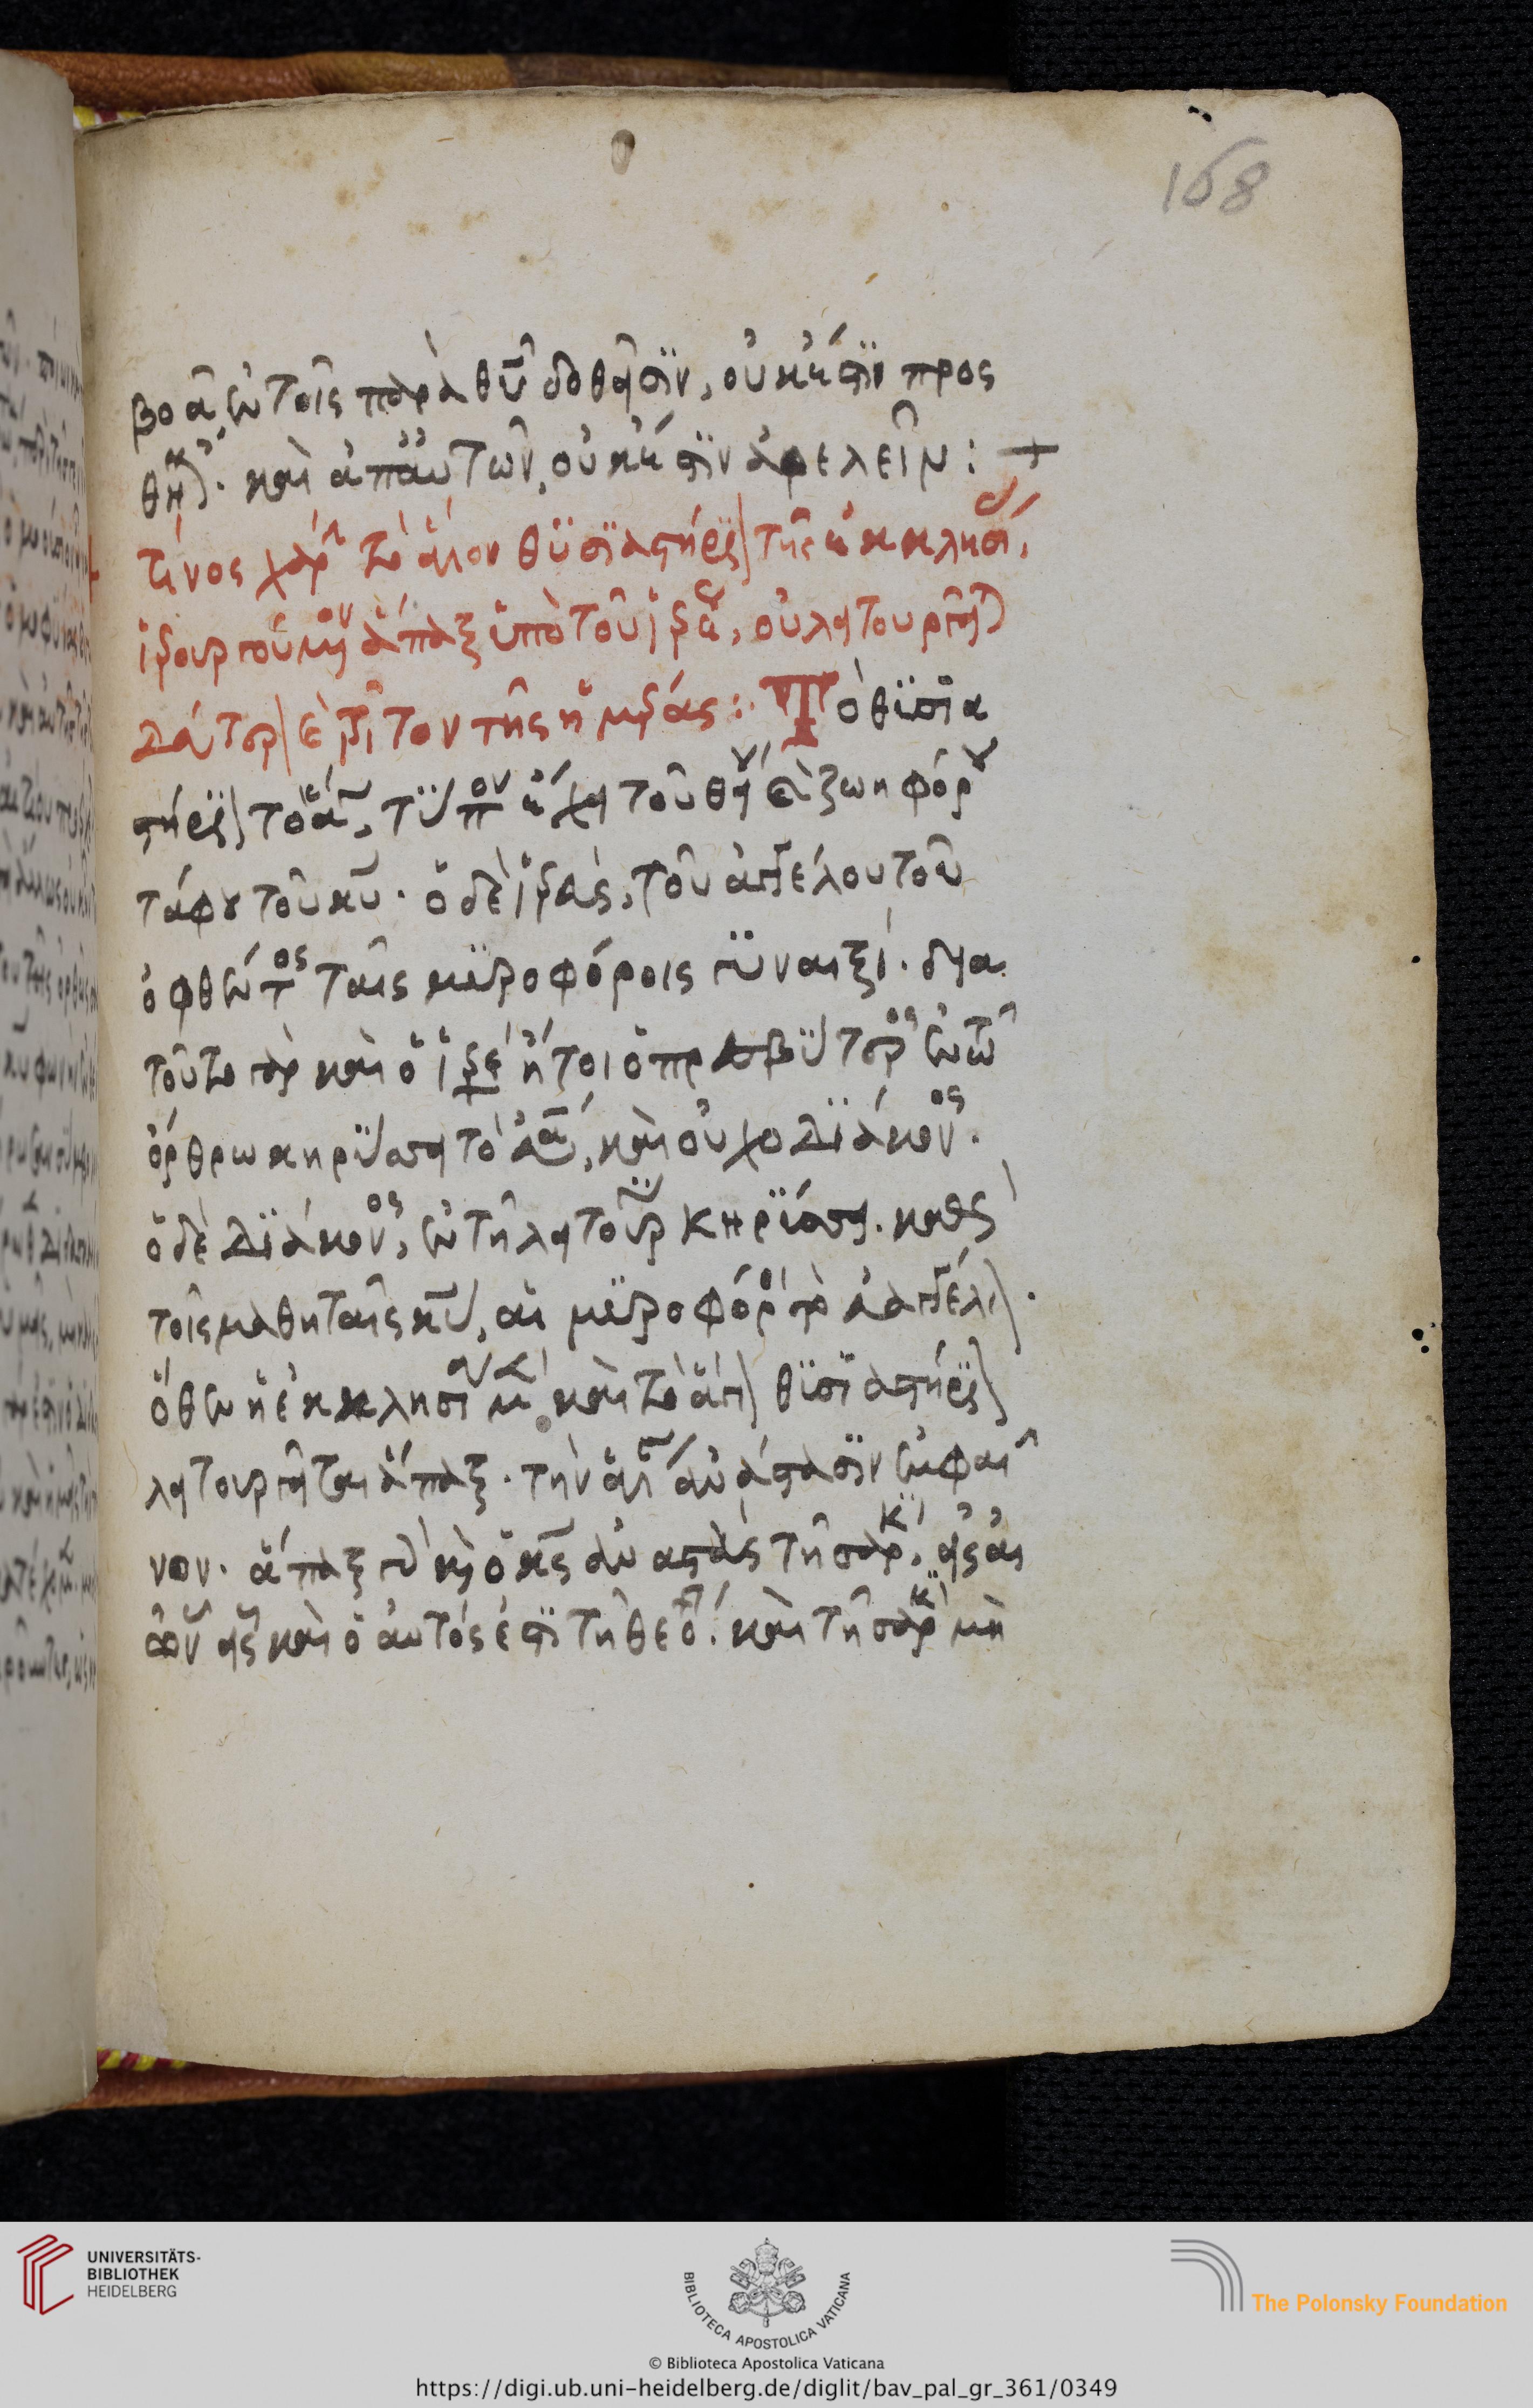 168
βοᾶ ἐν τοῖς παρὰ θῡ δοθεῖσϊν, οὐκ ἔστϊν προς
θῆκ. καὶ ἀπ' αὐτῶν, οὐκ ἔστϊν ἀφελεῖν : +
τίνος χάριν τὸ ἅγιον θϋσϊαστήρϊον τῆς ἐκκλησίας,
ἱερουργούμενον ἅπαξ ὑπὸ τοῦ ἱερέως, οὐ λειτουργεῖται
δεύτερον ἐπὶ τὸν τῆς ἡμέρας :· Τὸ θϋσϊα
στήρϊον τὸ ἅγιον, τϋπον ἔχει τοῦ θείου καὶ ζωηφόρου
τάφου τοῦ κῡ· ὁ δὲ ἱερεὺς, τοῦ ἀγγέλου τοῦ
ὀφθέντος ταῖς μϋροφόροις γϋναιξί· δια
τοῦτο γὰρ καὶ ὁ ἱερεὺς ἤτοι ὁ πρεσβϋτερος ἐν τῶ
ὄρθρω κηρϋσσει τὸ εὐα, καὶ οὐχ ο διάκονος.
ὁ δὲ διάκονος, ἐν τῆ λειτουρ κηρϋσσει. καθὼς
τοῖς μαθηταῖς κῡ, αἱ μϋροφόροι τὸ εὐαγγέλιον.
ὅθεν ἡ ἐκκλησία καὶ τὸ ἅγιον θϋσϊαστήρϊον
λειτουργεῖται ἅπαξ. τὴν ἁγίαν ἀνάστασϊν ἐμφαῖ
νον. ἅπαξ γὰρ καὶ ὁ κς̄ ἀναστὰς τῆ σαρκὶ, εἷς ὢν
εἷς καὶ ὁ αὐτός ἐστϊ τῆ θεότητι καὶ τῆ σαρκὶ μὴ
UNIVERSITÄTS-
BIBLIOTHEK
HEIDELBERG
BIBLIOTECA APOSTOLICA VATICANA
The Polonsky Foundation
© Biblioteca Apostolica Vaticana
https://digi.ub.uni-heidelberg.de/diglit/bav_pal_gr_361/0349